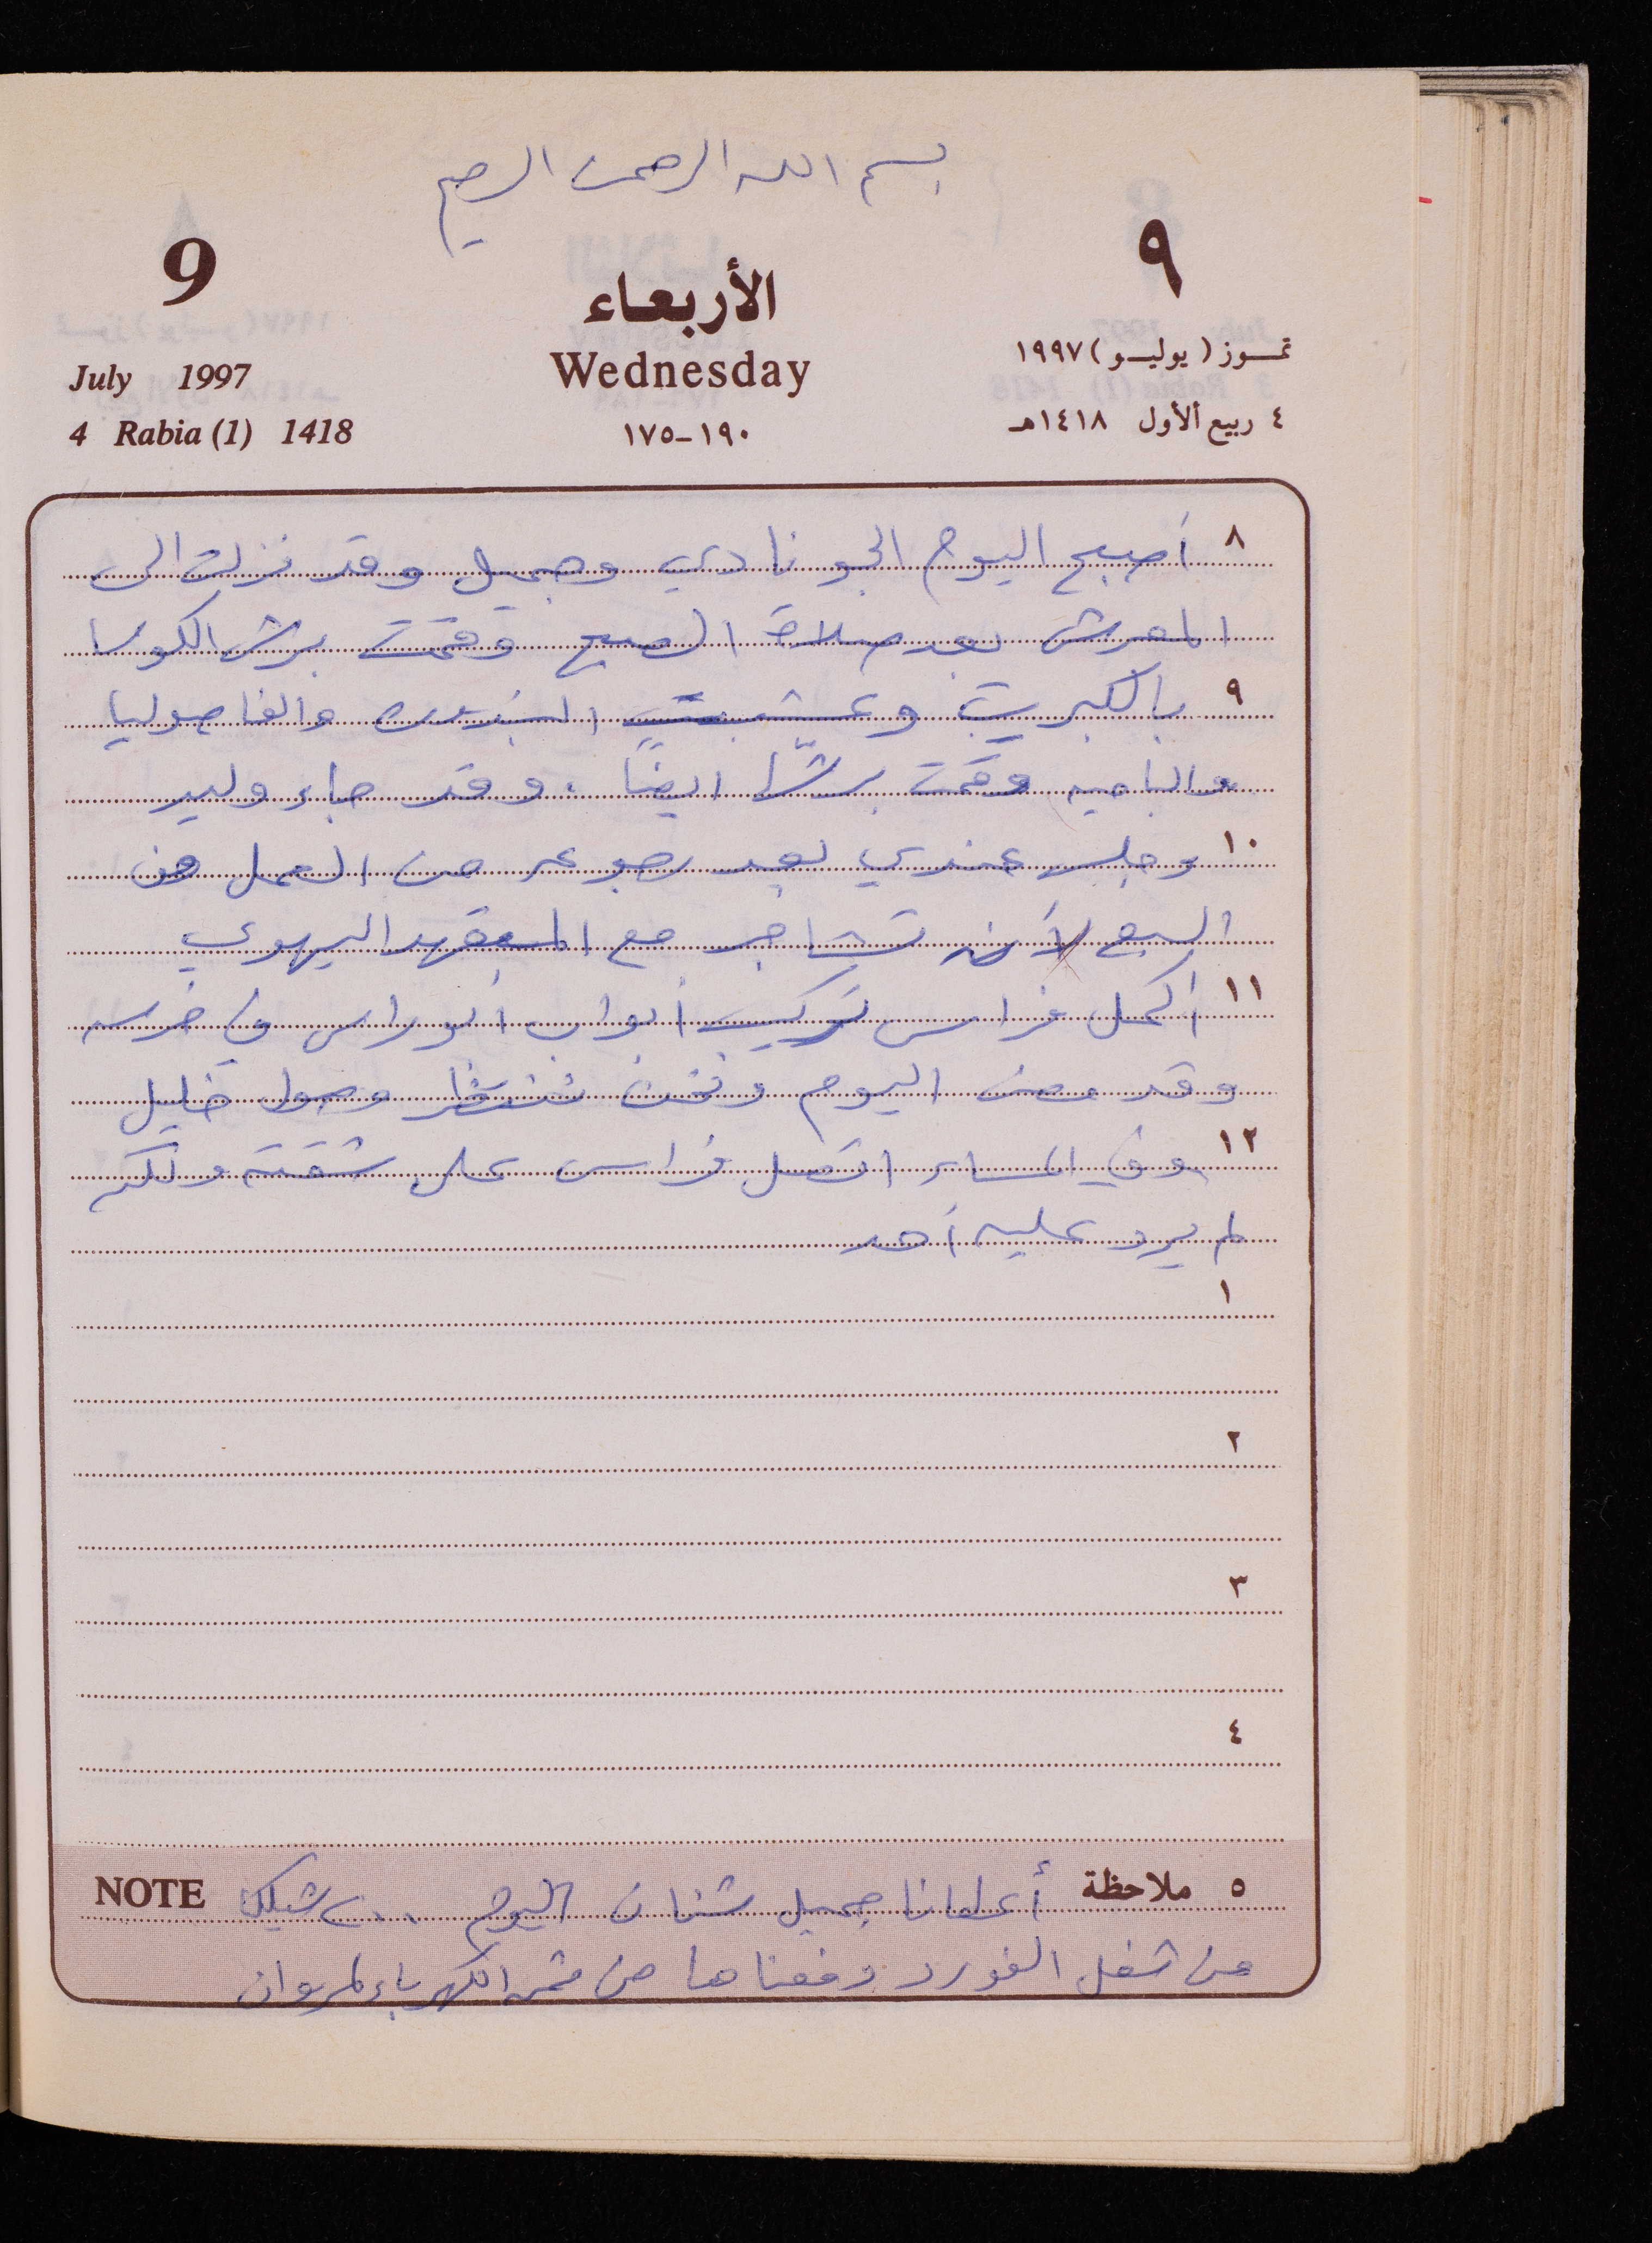 بسم الله الرحمن الرحيم
9
٩
الأربعاء
Wednesday
١٩٠-١٧٥
July 1997
4 Rabia (1) 1418
تمـوز (يوليـو) ١٩٩٧
٤ ربيع الأول ١٤١٨هـ
٨ أصبح اليوم الجو نادي وجميل وقد نزلت الى
المعرش بعد صلاة الصبح وقمت برش الكوسا
٩ بالكبريت وعشبت البندوره والفاصوليا
والباميه وقمت برشّها ايضاً. وقد جاء وليد
١٠ وجلس عندي بعد رجوعه من العمل من
السبع لأنه تشاجر مع المتعهد اليهودي
١١ أكمل فراس تركيب أبواب ابو راس في خربسه
وقد مضى اليوم ونحن ننتظر وصول خليل
١٢ وفي المساء اتصل فراس على شقته ولكنه
لم يرد عليه أحد
١
٢
٣
٤
٥ ملاحظة أعطانا جميل شنان اليوم ٢٠٠ شيكل NOTE
من شغل الفورد دفعناها من ثمن الكهرباء لمروان